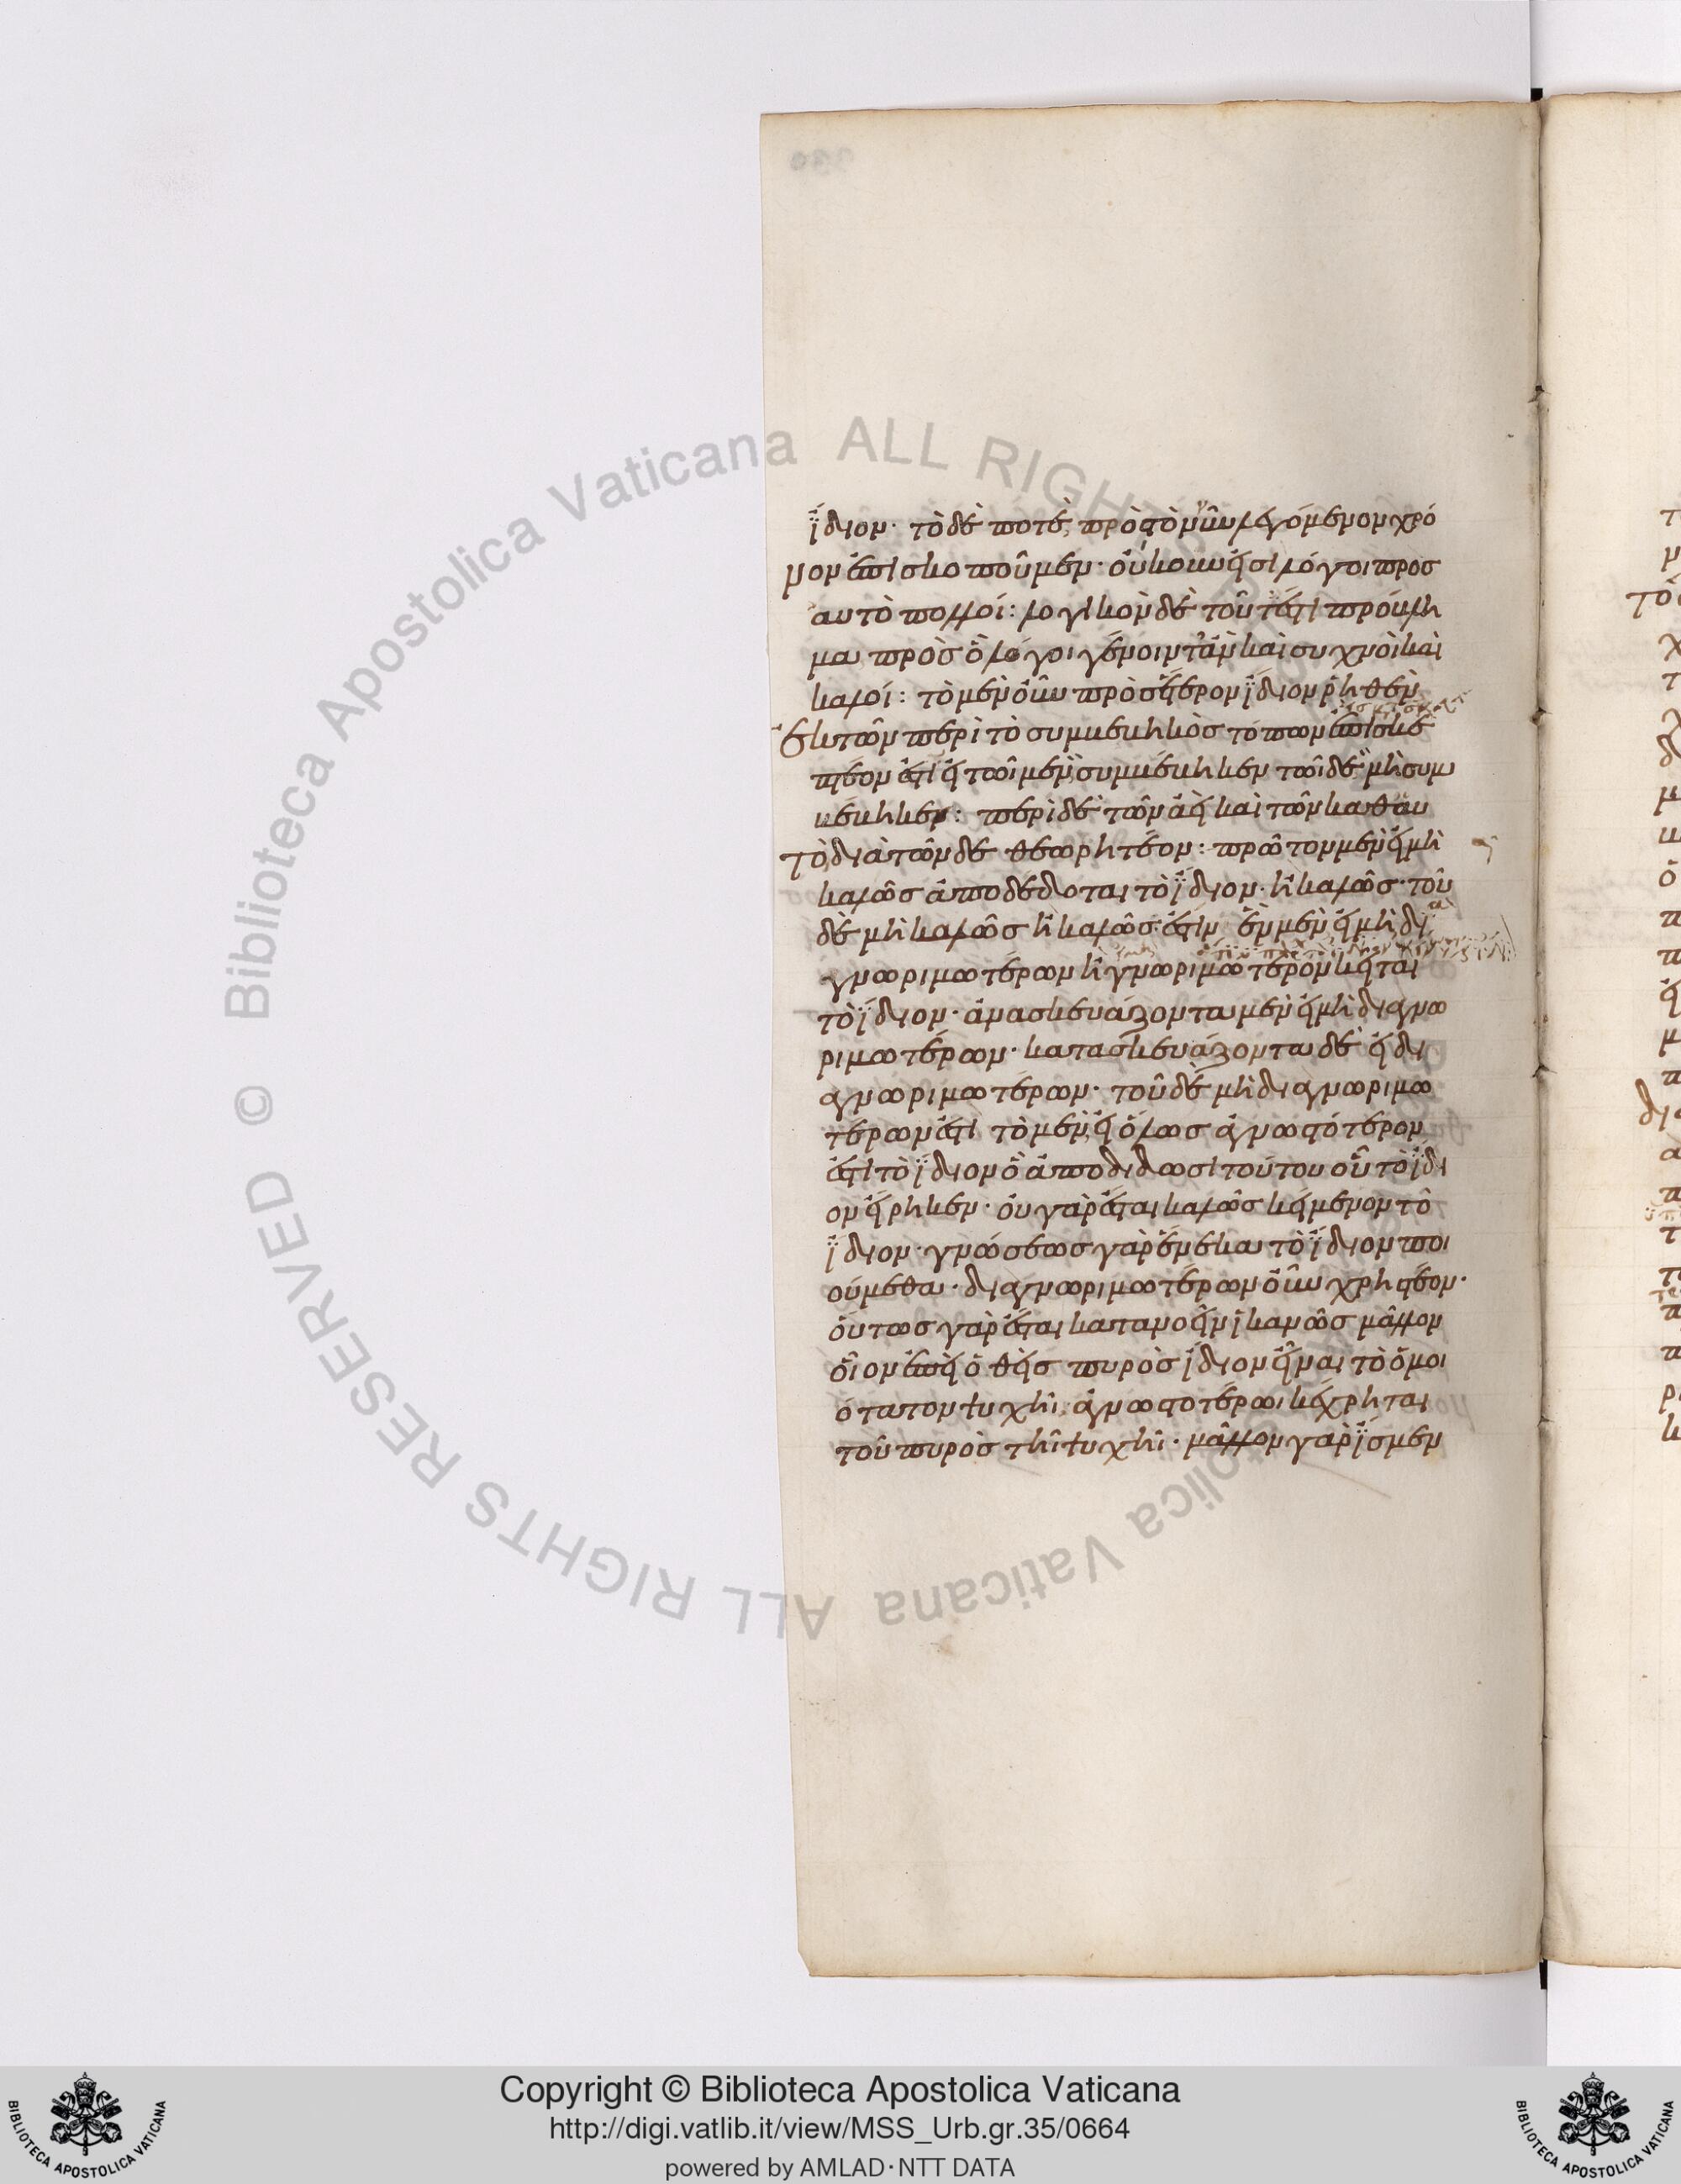 ἴδιον· τὸ δὲ ποτὲ, πρὸς τὸν νῦν λεγόμενον χρό
νον ἐπισκοποῦμεν· οὔκουν εἰσὶ λόγοι προσ
αυτὸ πολλοί: λογικὸν δὲ τοῦτ' ἐστὶ πρόβλη
μα πρὸς ὃ λόγοι γένοιντ' ἂν καὶ συχνοὶ καὶ
καλοί: τὸ μὲν οὖν πρὸς ἕτερον ἴδιον ῥηθὲν
ἐκ τῶν περὶ τὸ συμβεβηκὸς τόπων ἐπισκε
πτέον ἐστὶ εἰ τῶι μὲν συμβέβηκεν τῶι δὲ μὴ συμ
βέβηκεν: περὶ δὲ τῶν ἀεὶ καὶ τῶν καθ αυ
τὸ, διὰ τῶνδε θεωρητέον: πρῶτον μὲν εἰ μὴ
καλῶς ἀποδέδοται τὸ ἴδιον· ἢ καλῶς· τοῦ
δὲ μὴ καλῶς ἢ καλῶς ἐστὶν ἓν μὲν εἰ μὴ δι
γνωριμωτέρων ἢ γνωριμώτερον κεῖται
τὸ ἴδιον· ἀνασκευάζοντα μὲν εἰ μὴ διαγνω
ριμωτέρων· κατασκευάζοντα δὲ εἰ δι
αγνωριμωτέρων· τοῦ δὲ μὴ διαγνωριμω
τέρων ἐστὶ τὸ μὲν, εἰ ὅλως ἀγνωστότερον
ἐστὶ τὸ ἴδιον ὃ ἀποδίδωσι τούτου οὗ τὸ ἴδι
ον εἴρηκεν· οὐ γὰρ ἔσται καλῶς κείμενον τὸ
ἴδιον· γνώσεως γὰρ ἕνεκα τὸ ἴδιον ποι
ούμεθα· διαγνωριμωτέρων οὖν χρηστέον·
οὕτως γὰρ ἔσται κατανοεῖν ἱκανῶς μᾶλλον
οἷον ἐπεὶ ὁ θεὶς πυρὸς ἴδιον εἶναι τὸ ὁμοι
ότατον ψυχῆι, ἀγνωστοτέρωι κέχρηται
τοῦ πυρὸς τῆι ψυχῆι· μᾶλλον γὰρ ἴσμεν
Copyright © Biblioteca Apostolica Vaticana
http://digi.vatlib.it/view/MSS_Urb.gr.35/0664
powered by AMLAD·NTT DATA
BIBLIOTECA APOSTOLICA VATICANA
BIBLIOTECA APOSTOLICA VATICANA
© Biblioteca Apostolica Vaticana ALL RIGHTS RESERVED